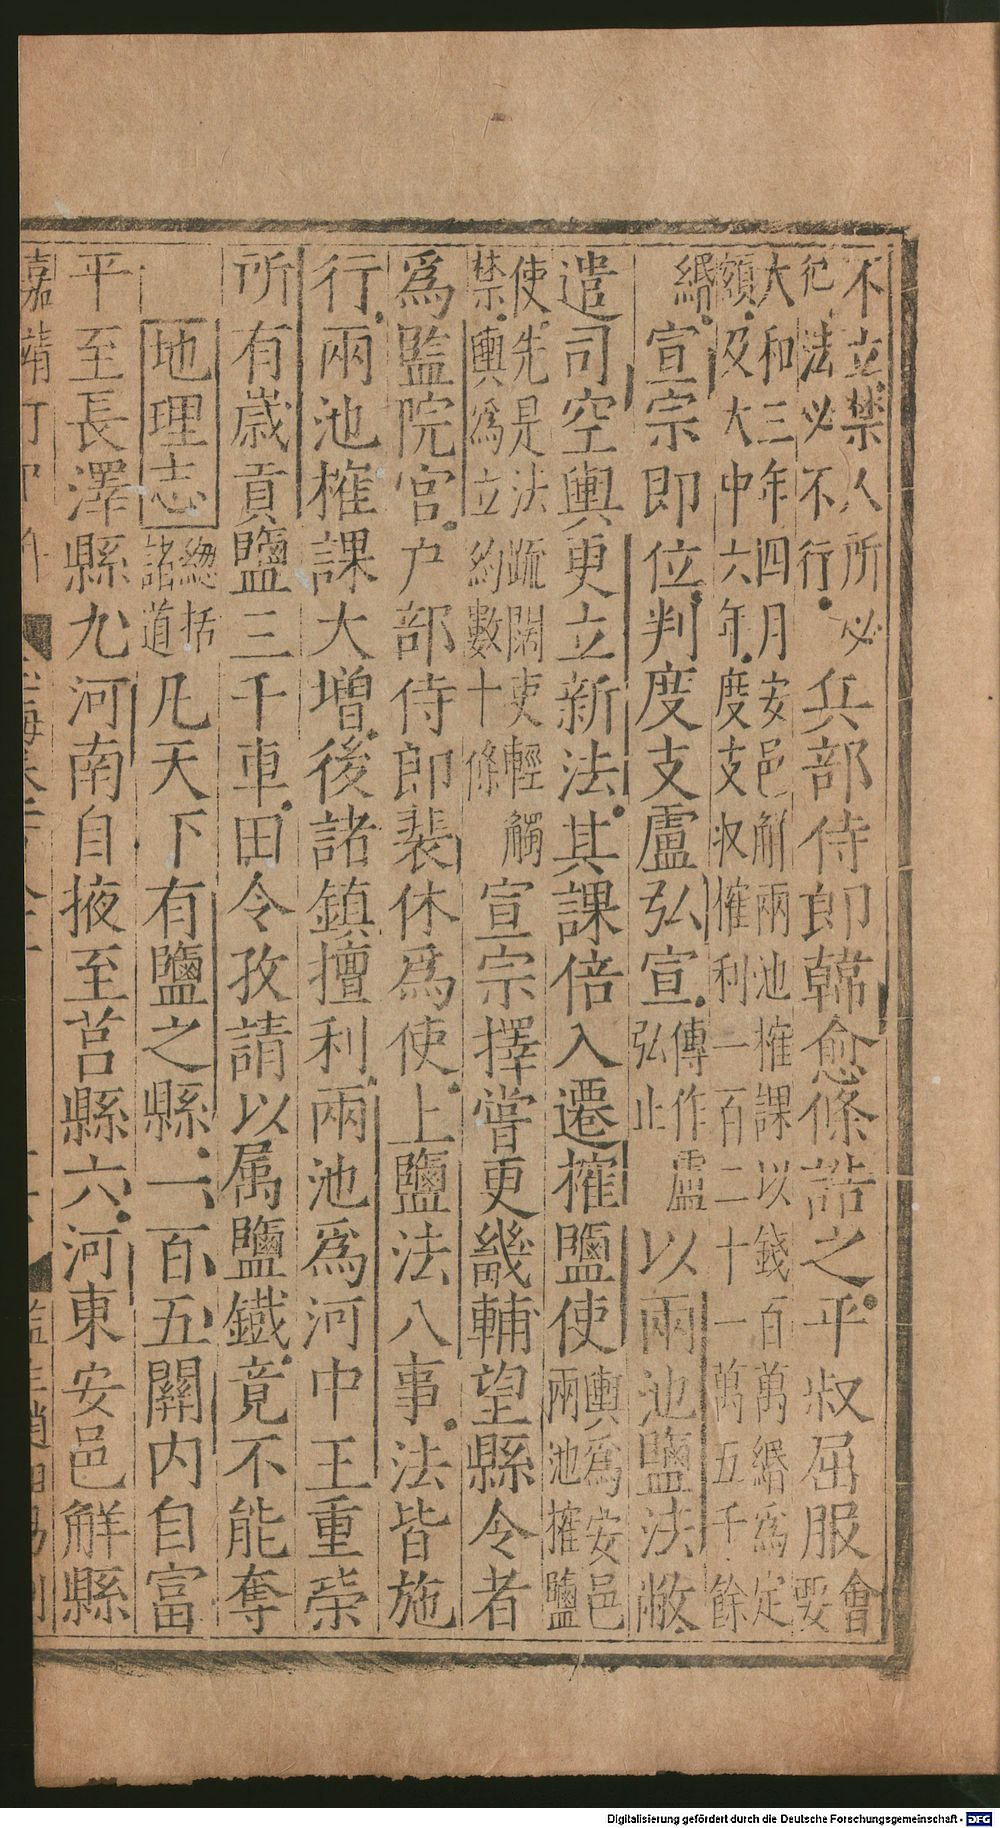 不立禁人所必犯法必不行兵部侍郎韓愈條詰之平叔屈服會要
大和三年四月安邑解兩池㩁課以錢百萬緡爲定額及大中六年度支收㩁利一百二十一萬五千餘
緡宣宗即位判度支盧弘宣傳作盧弘止以兩池鹽法敝
遣司空輿更立新法其課倍入遷㩁鹽使輿爲安邑兩池㩁鹽
使先是法疏闊吏輕觸禁輿爲立約數十條宣宗擇嘗更畿輔望縣令者
爲監院官户部侍郎裴休爲使上鹽法八事法皆施
行兩池㩁課大增後諸鎮擅利兩池爲河中王重荣
所有歲貢鹽三千車田令孜請以属鹽鐵竟不能奪
地理志緫括諸道凡天下有鹽之縣一百五關内自富
平至長澤縣九河南自掖至莒縣六河東安邑解縣
嘉靖丁
Digitalisierung gefördert durch die Deutsche Forschungsgemeinschaft - DFG